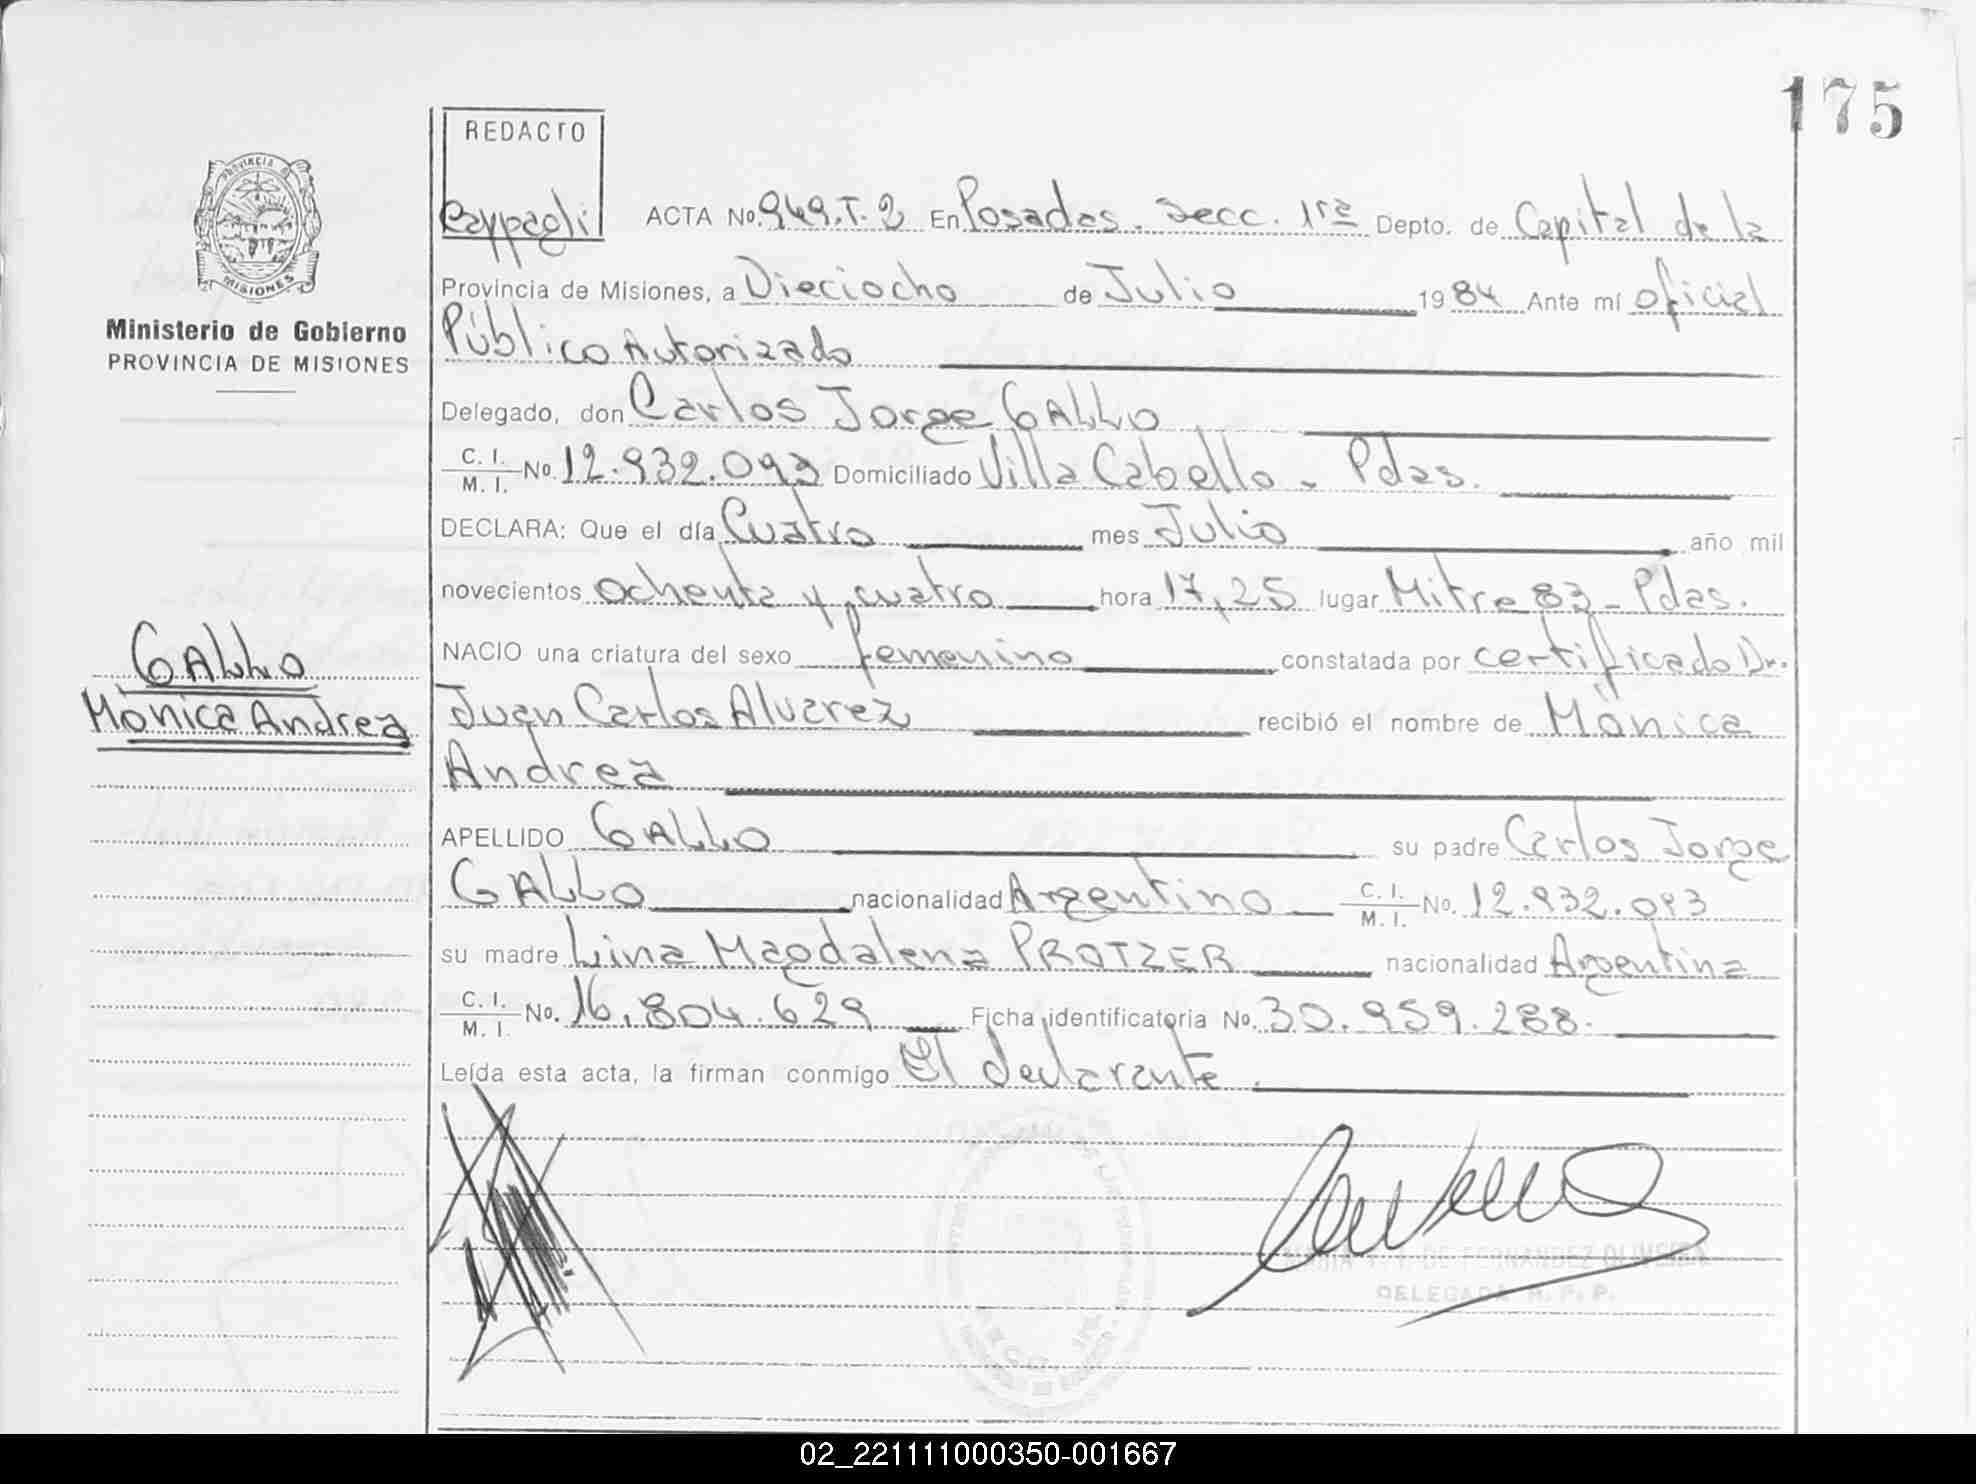 175
REDACTO
PROVINCIA DE
MISIONES
ACTA No. 949.T.2 En Posadas. Secc. 1ra Depto. de Capital de la
Provincia de Misiones, a Dieciocho de Julio 1984 Ante mí oficial
Ministerio de Gobierno
PROVINCIA DE MISIONES
Público Autorizado
Delegado, don Carlos Jorge GALLO
C. I. / M. I. No. 12.932.093 Domiciliado Villa Cabello - Pdas.
DECLARA: Que el día Cuatro mes Julio año mil
novecientos ochenta y cuatro hora 17,25 lugar Mitre 83 - Pdas.
NACIO una criatura del sexo femenino constatada por certificado Dr.
GALLO
Mónica Andrea
Juan Carlos Alvarez recibió el nombre de Mónica
Andrea
APELLIDO GALLO su padre Carlos Jorge
GALLO nacionalidad Argentino C. I. / M. I. No. 12.932.093
su madre Lina Magdalena PROTZER nacionalidad Argentina
C. I. / M. I. No. 16.804.629 Ficha identificatoria No. 30.959.288.
Leída esta acta, la firman conmigo El declarante.
DE FERNANDEZ OLIVEIRA
DELEGADA R. P. P.
02_221111000350-001667